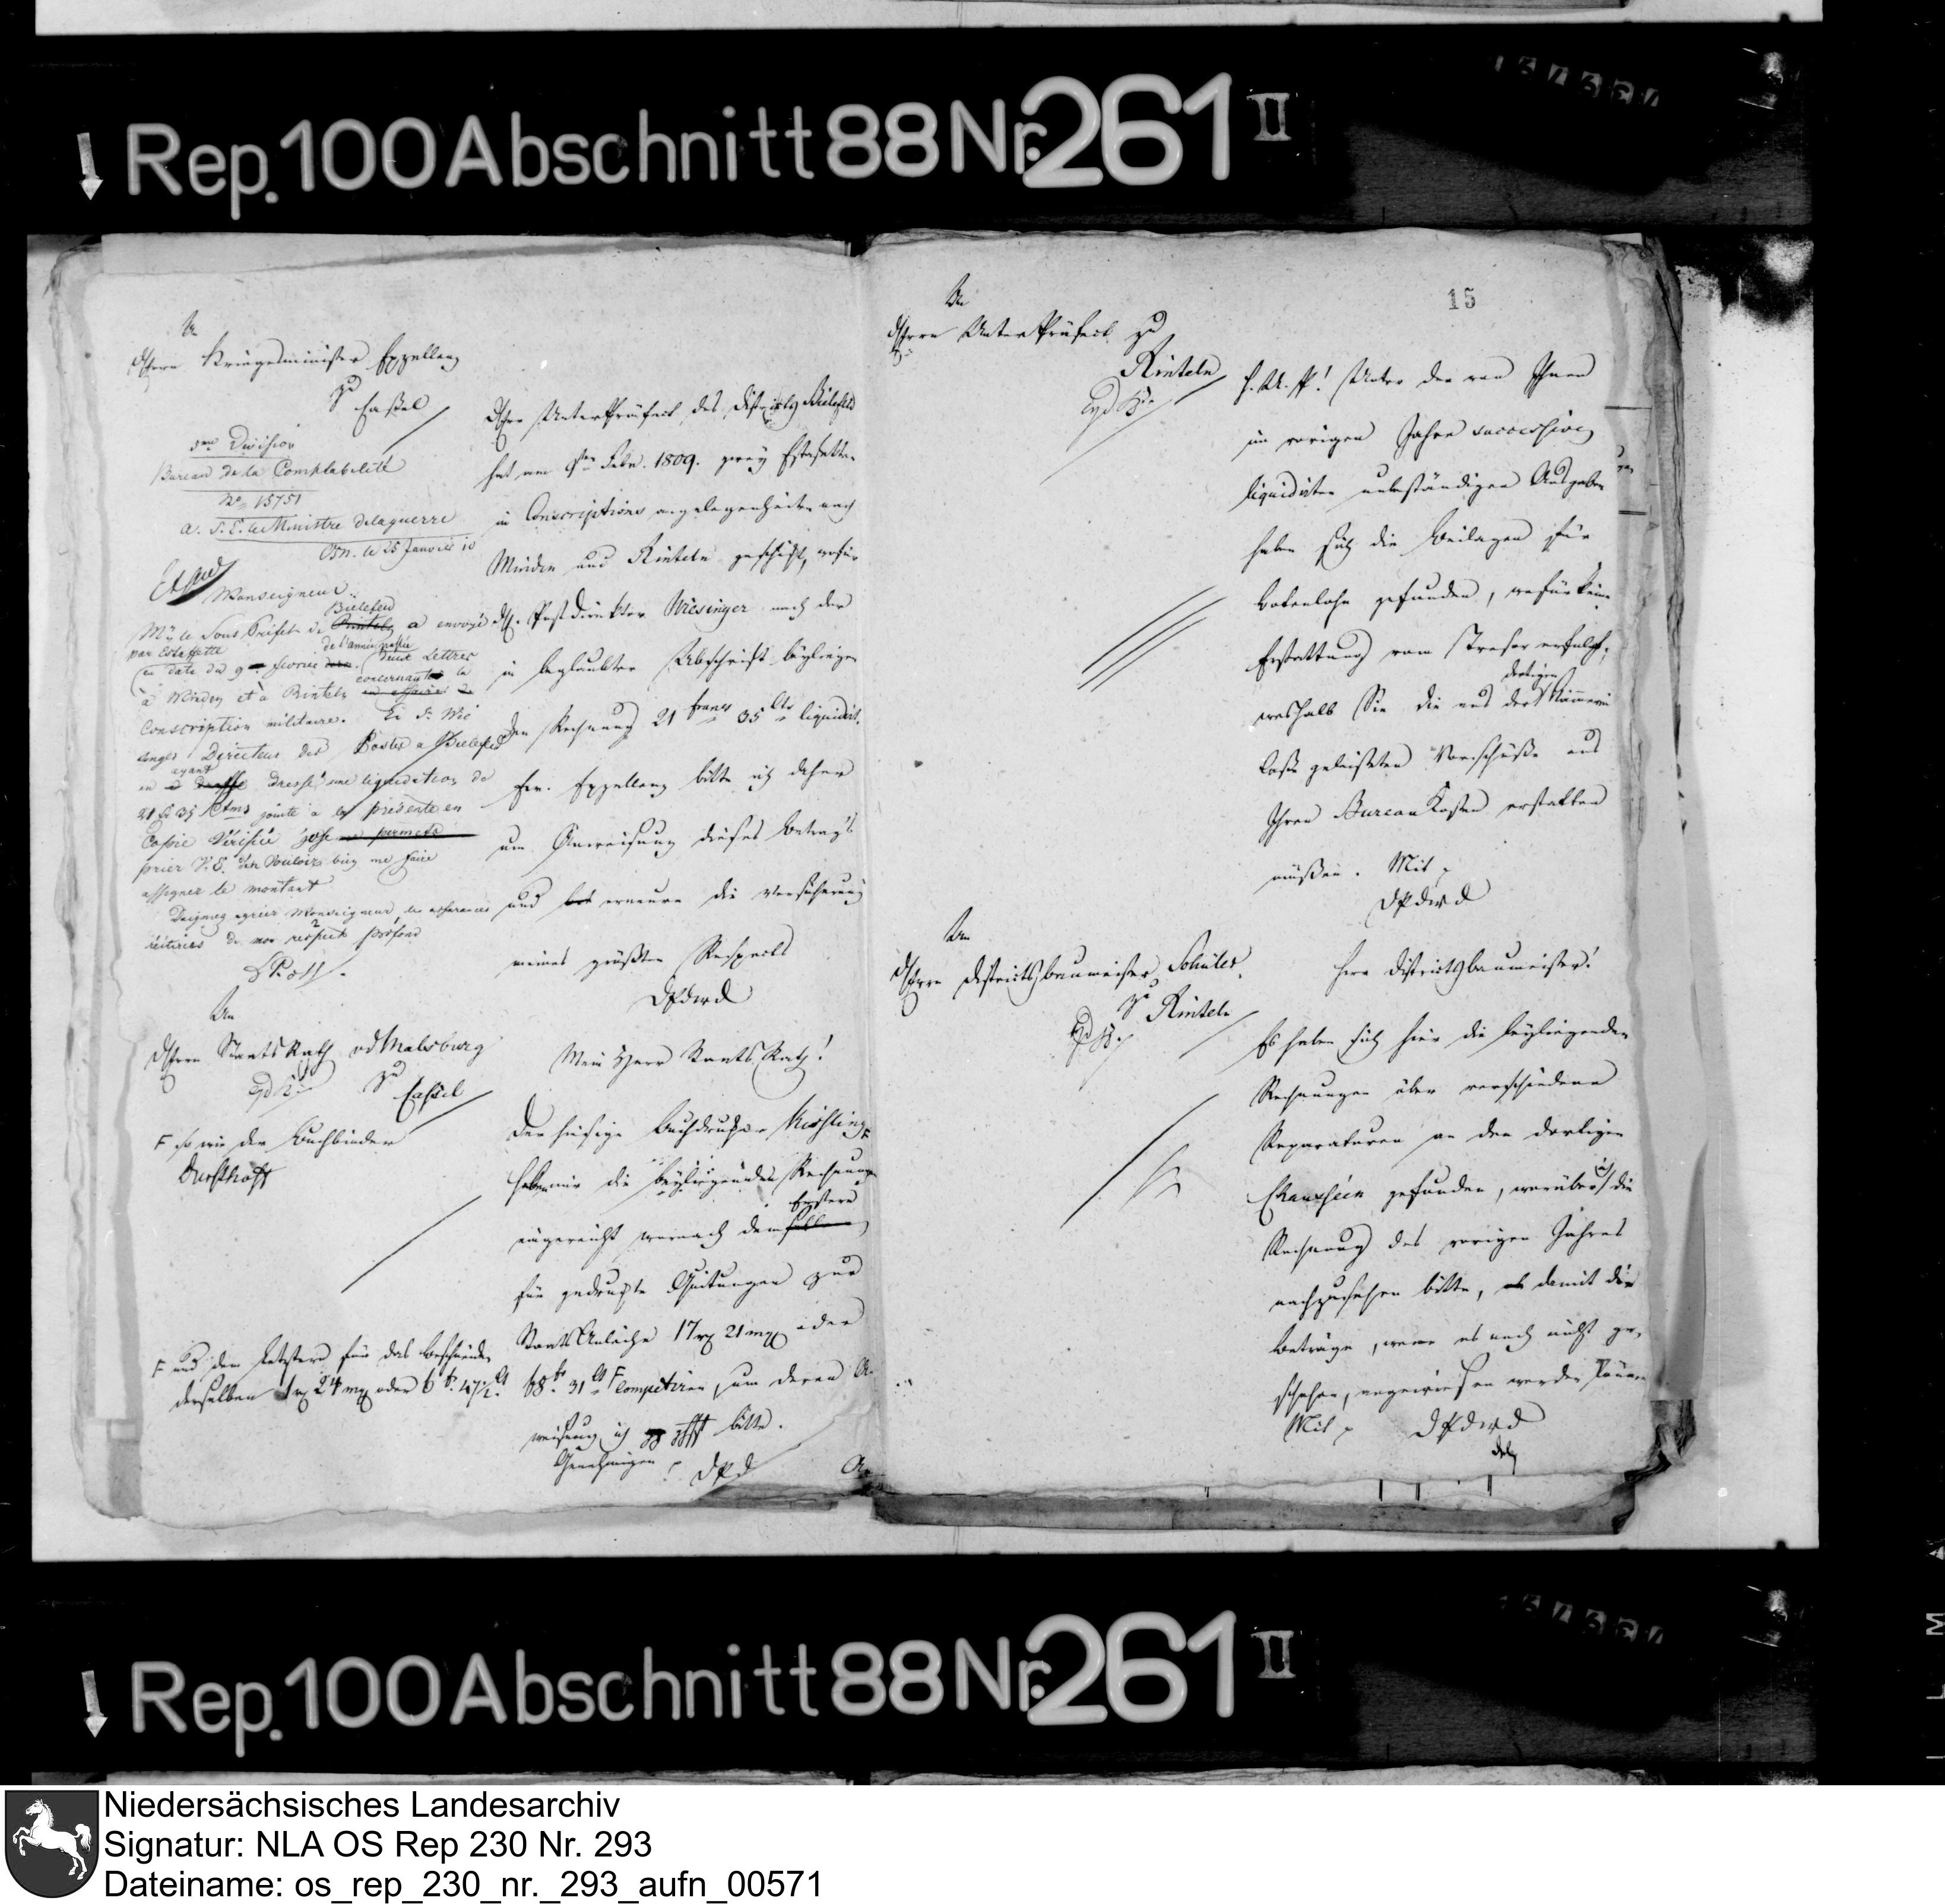 Rep. 100 Abschnitt 88 Nr. 261 II
An
d Herrn Kriegsminister Eppellenz
zu Cassel
3me Division
Bureau de la Comptabilité
No. 15751
a. S. E. le Ministre de la guerre
Osn. le 25 Janvier 10
Monseigneur
Mr. le Sous Préfet de Rinteln Bielefeld a envoyé
par Estaffette
en date du 9 fevrier de l'année passée deux Lettres
à Minden et à Rinteln concernant la
Conscription militaire. Le Sr. Wie
singer Directeur des Postes a Bielefeld
en ayant dressé une liquidation de
21 fr 35 Ctms jointe à la présente en
Copie vérifiée j'ose
prier V. E. de vouloir bien me faire
assigner le montant
Daignez agréer Monseigneur, les assurances
réitérées de mon respect profond
Der Herr Unter Präfect des Districts Bielefeld
hat am 9ten Febr. 1809. zwey Estafetten
in Conscriptions angelegenheiten nach
Minden und Rinteln geschickt, wofür
d H. Postdirektor Wiesinger nach der
in beglaubter Abschrift beyliegen
den Rechnung 21 francs 35 Cts liquidirt.
Ew. Eppellenz bitte ich daher
um Anweisung dieses Betrags
und erneure die Versicherung
meines größten Respects
DPdwd
An
d Herrn Staats Rath vd Malsburg
zu Cassel
F so wie der Buchbinder
Mein Herr Staats Rath!
Der hiesige Buchdrucker Kißling F
haben mir die beyliegenden Rechnungen
eingereicht wornach dem Erstern
für gedruckte Quitungen zur
Staats Anleihe 17 rt 21 mgr oder
68 fr. 31 Ct F competiren, um deren An
weisung ich bitte.
Genehmigen DPd
F und dem Letztern für das Beschneiden
derselben 1 rt 24 mgr oder 6 fr. 47½ Ct
15
An
d Herrn Unter Präfect zu
Rinteln
H. U. P! Unter den von Ihnen
im vorigen Jahre successive
liquidirten unbeständigen Ausgaben
haben sich die Beilagen für
Botenlohn gefunden, wofür keine
Erstattung vom Tresor erfolgt,
weshalb Sie die aus der dortigen Kämmerei
Casse geleisteten Vorschüße aus
Ihren Bureau Kosten erstatten
müßen. Mit
DPdwd
An
d Herrn Districtsbaumeister Schüler
zu Rinteln
Herr Districtsbaumeister!
Es haben sich hier die beyliegenden
Rechnungen über verschiedene
Reparaturen an den dortigen
Chausséen gefunden, worüber ich die
Rechnung des vorigen Jahres
nachzusehen bitte, damit die
Beträge, wenn es noch nicht ge,
schehen, angewiesen werden können
Mit DPdwd
Rep. 100 Abschnitt 88 Nr. 261 II
Niedersächsisches Landesarchiv
Signatur: NLA OS Rep 230 Nr. 293
Dateiname: os_rep_230_nr._293_aufn_00571